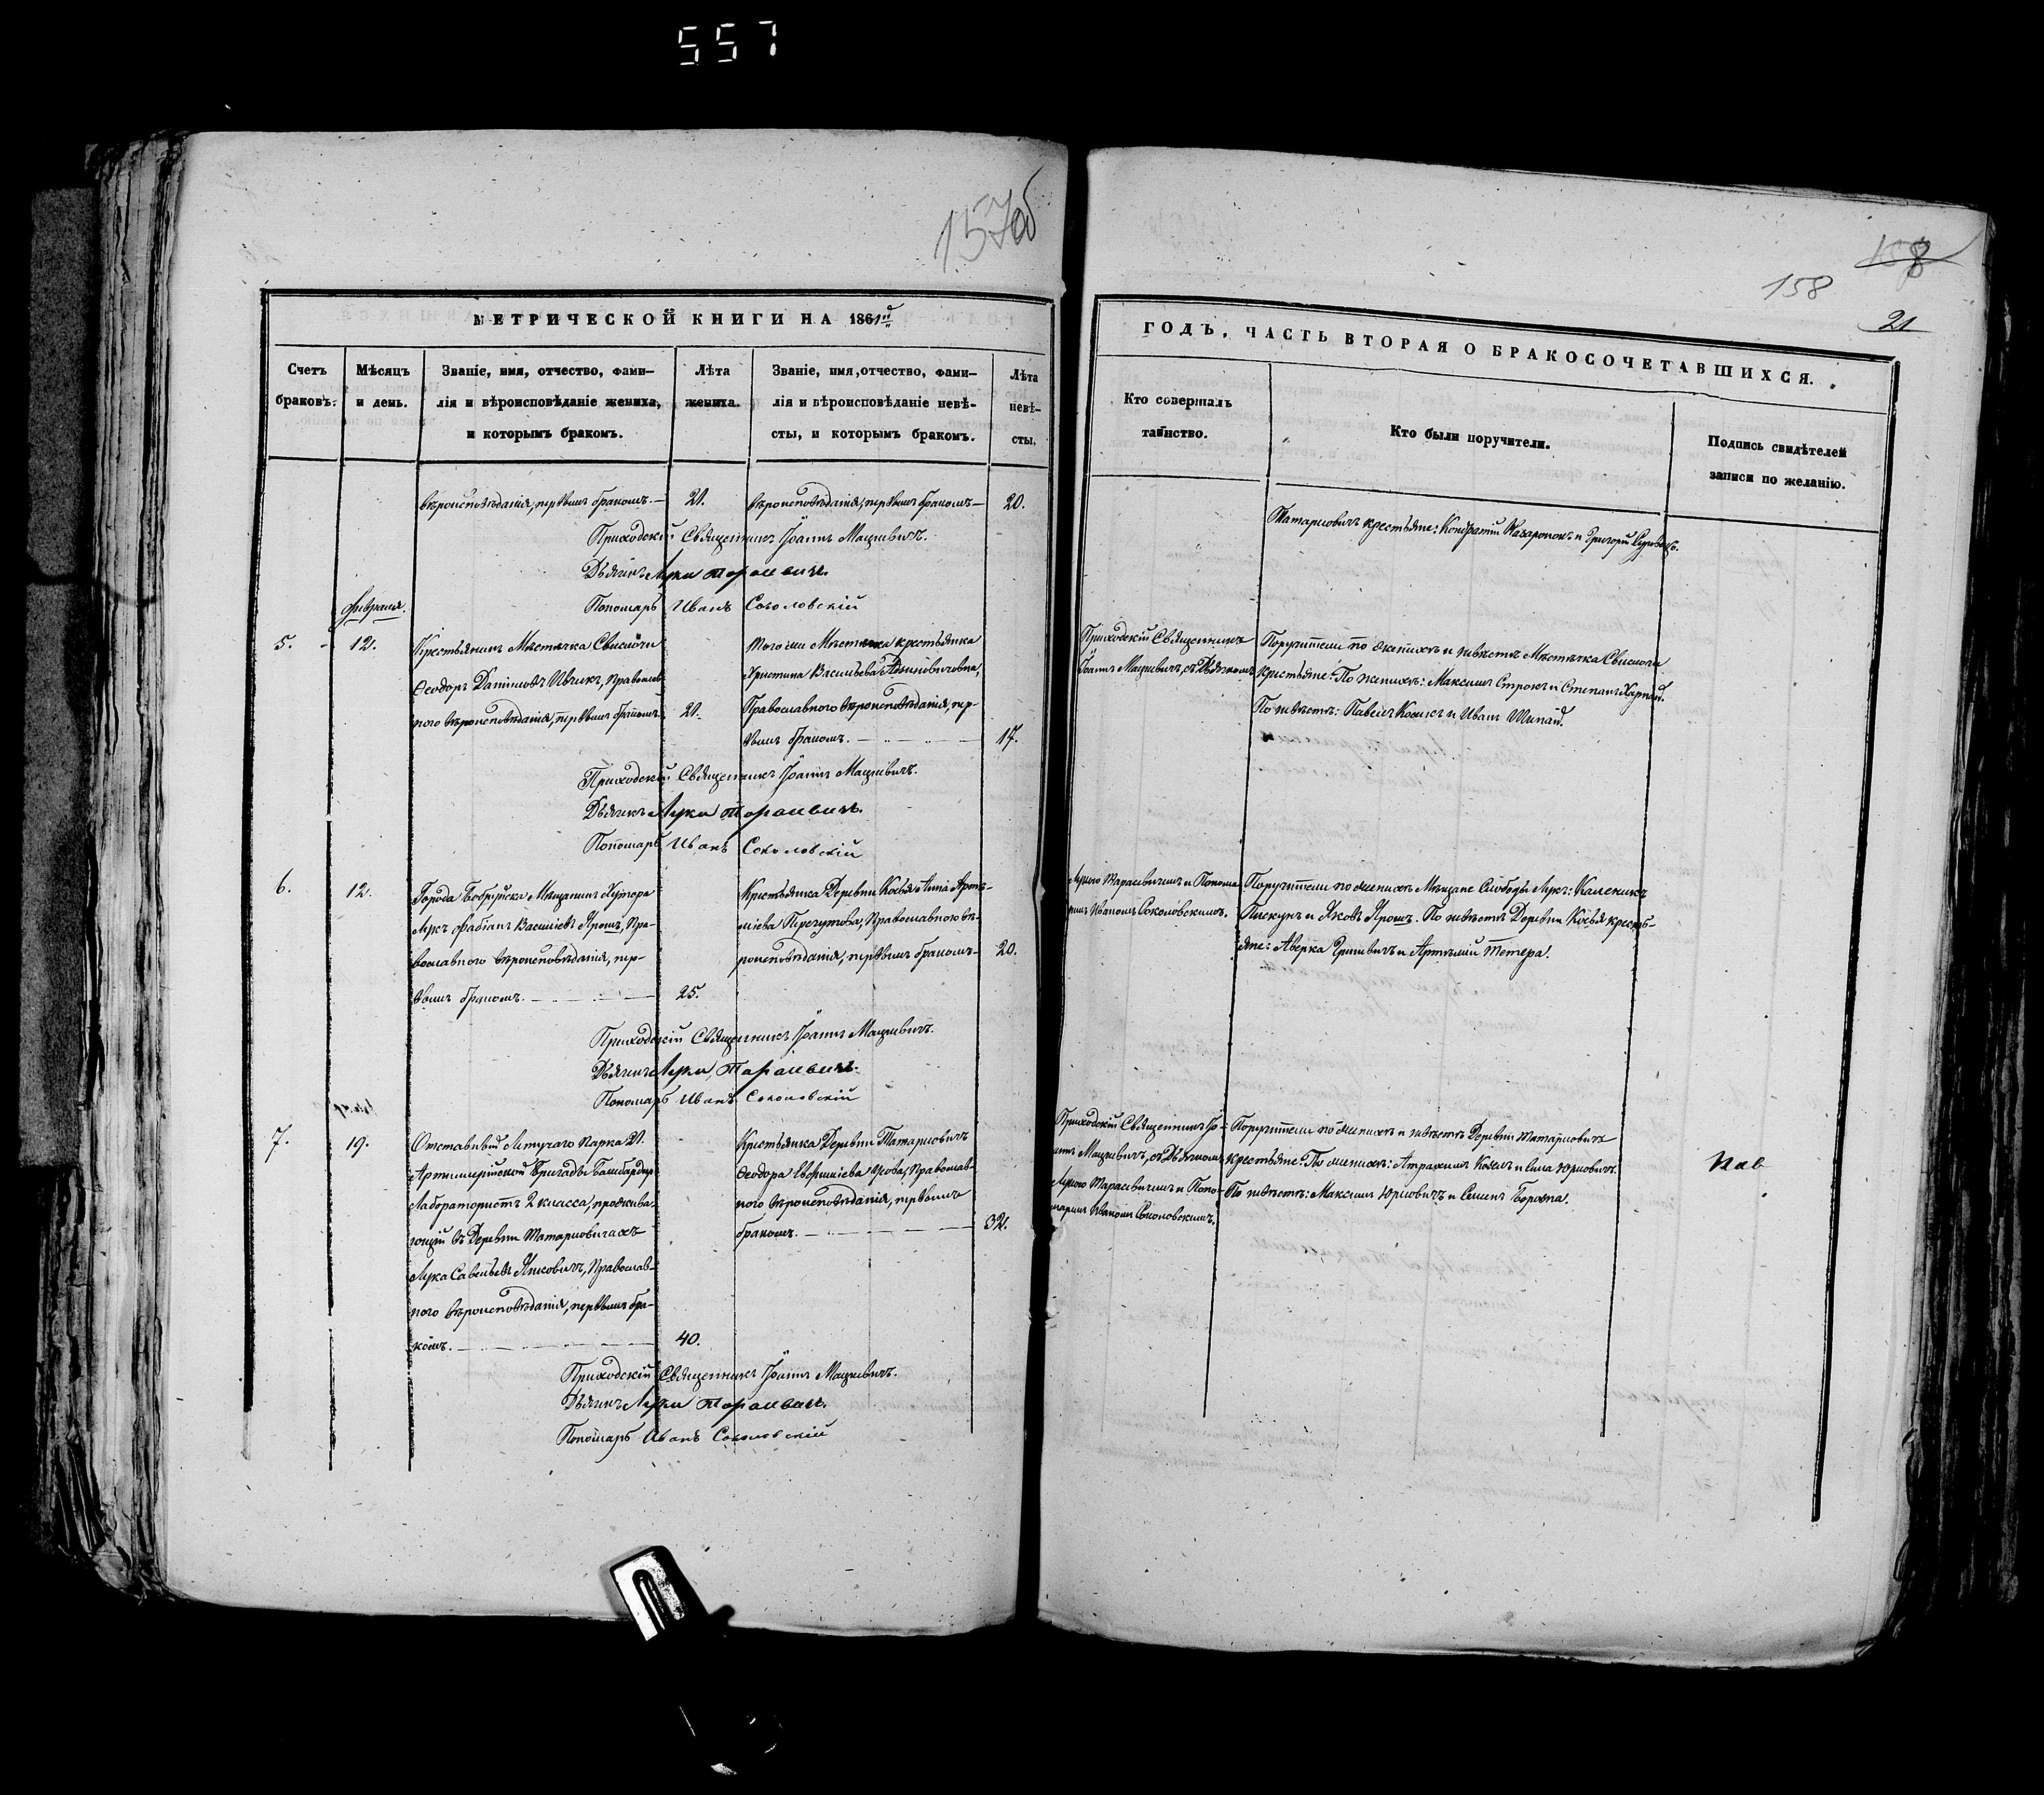 557
157об
МЕТРИЧЕСКОЙ КНИГИ НА 1861й
Счетъ браковъ.
Мѣсяцъ и день.
Званіе, имя, отчество, фами-
лія и вѣроисповѣданіе жениха,
и которымъ бракомъ.
Лѣта жениха.
Званіе, имя, отчество, фами-
лія и вѣроисповѣданіе невѣ-
сты, и которымъ бракомъ.
Лѣта невѣ-
сты.
вѣроисповѣданія, первымъ бракомъ.— 21. вѣроисповѣданія, первымъ бракомъ— 20.
Приходскій Священникъ Іоаннъ Мацкевичъ.
Дьячекъ Лука Тарасевичъ.
Пономарь Иванъ Соколовскій
Февраля.
5. 12.
Крестьянинъ Мѣстечка Свислочи
Ѳеодоръ Даниловъ Ивчикъ, Православ-
ного вѣроисповѣданія, первымъ бракомъ. 20.
Того же Мѣстечка крестьянка
Христина Васильева
Православного вѣроисповѣданія, пер-
вымъ бракомъ. 17.
Приходскій Священникъ Іоаннъ Мацкевичъ.
Дьячекъ Лука Тарасевичъ.
Пономарь Иванъ Соколовскій
6. 12.
Города Бобруйска Мѣщанинъ Хутора
Лукъ Фабіанъ Василіевъ Ярошъ, Пра-
вославного вѣроисповѣданія, пер-
вымъ бракомъ. 25.
Крестьянка Деревни Косья Анна
Православного вѣ-
роисповѣданія, первымъ бракомъ— 20.
Приходскій Священникъ Іоаннъ Мацкевичъ.
Дьячекъ Лука Тарасевичъ.
Пономарь Иванъ Соколовскій
7. 19.
Отставный Летучаго Парка 21.
Артиллерійской Бригады Бамбардиръ
Лаборатористъ 2 класса, прожива-
ющій въ Деревни Татарковичахъ
Лука Савельевъ Янковичъ, Православ-
ного вѣроисповѣданія, первымъ бра-
комъ. 40.
Крестьянка Деревни Татарковичъ
Ѳеодора Православ-
ного вѣроисповѣданія, первымъ
бракомъ. 32.
Приходскій Священникъ Іоаннъ Мацкевичъ.
Дьячекъ Лука Тарасевичъ.
Пономарь Иванъ Соколовскій
158
21
ГОДЪ, ЧАСТЬ ВТОРАЯ О БРАКОСОЧЕТАВШИХСЯ.
Кто совершалъ
таинство.
Кто были поручители.
Подпись свидѣтелей
записи по желанію.
Татарковичъ крестьяне: Кондратій Назаронокъ и Григорій
Приходскій Священникъ
Іоаннъ Мацкевичъ, съ Дьячкомъ
Поручители по женихѣ и невѣстѣ Мѣстечка Свислочи
крестьяне: По женихѣ: Максимъ Строкъ и Степанъ
По невѣстѣ: Павелъ и Иванъ Шпанъ.
Лукою Тарасевичемъ и Понома-
ремъ Иваномъ Соколовскимъ.
Поручители по женихѣ Мѣщане Слободы Лукъ: Каленикъ
Пискунъ и Яковъ Ярошъ. По невѣстѣ Деревни Косья кресть-
яне: Аверка Гриневичъ и Артемій Тетера.
Приходскій Священникъ Іо-
аннъ Мацкевичъ, съ Дьячкомъ
Лукою Тарасевичемъ и Поно-
маремъ Иваномъ Соколовскимъ.
Поручители по женихѣ и невѣстѣ Деревни Татарковичъ
крестьяне: По женихѣ: Козелъ и Юрковичъ.
По невѣстѣ: Максимъ Юрковичъ и Семенъ